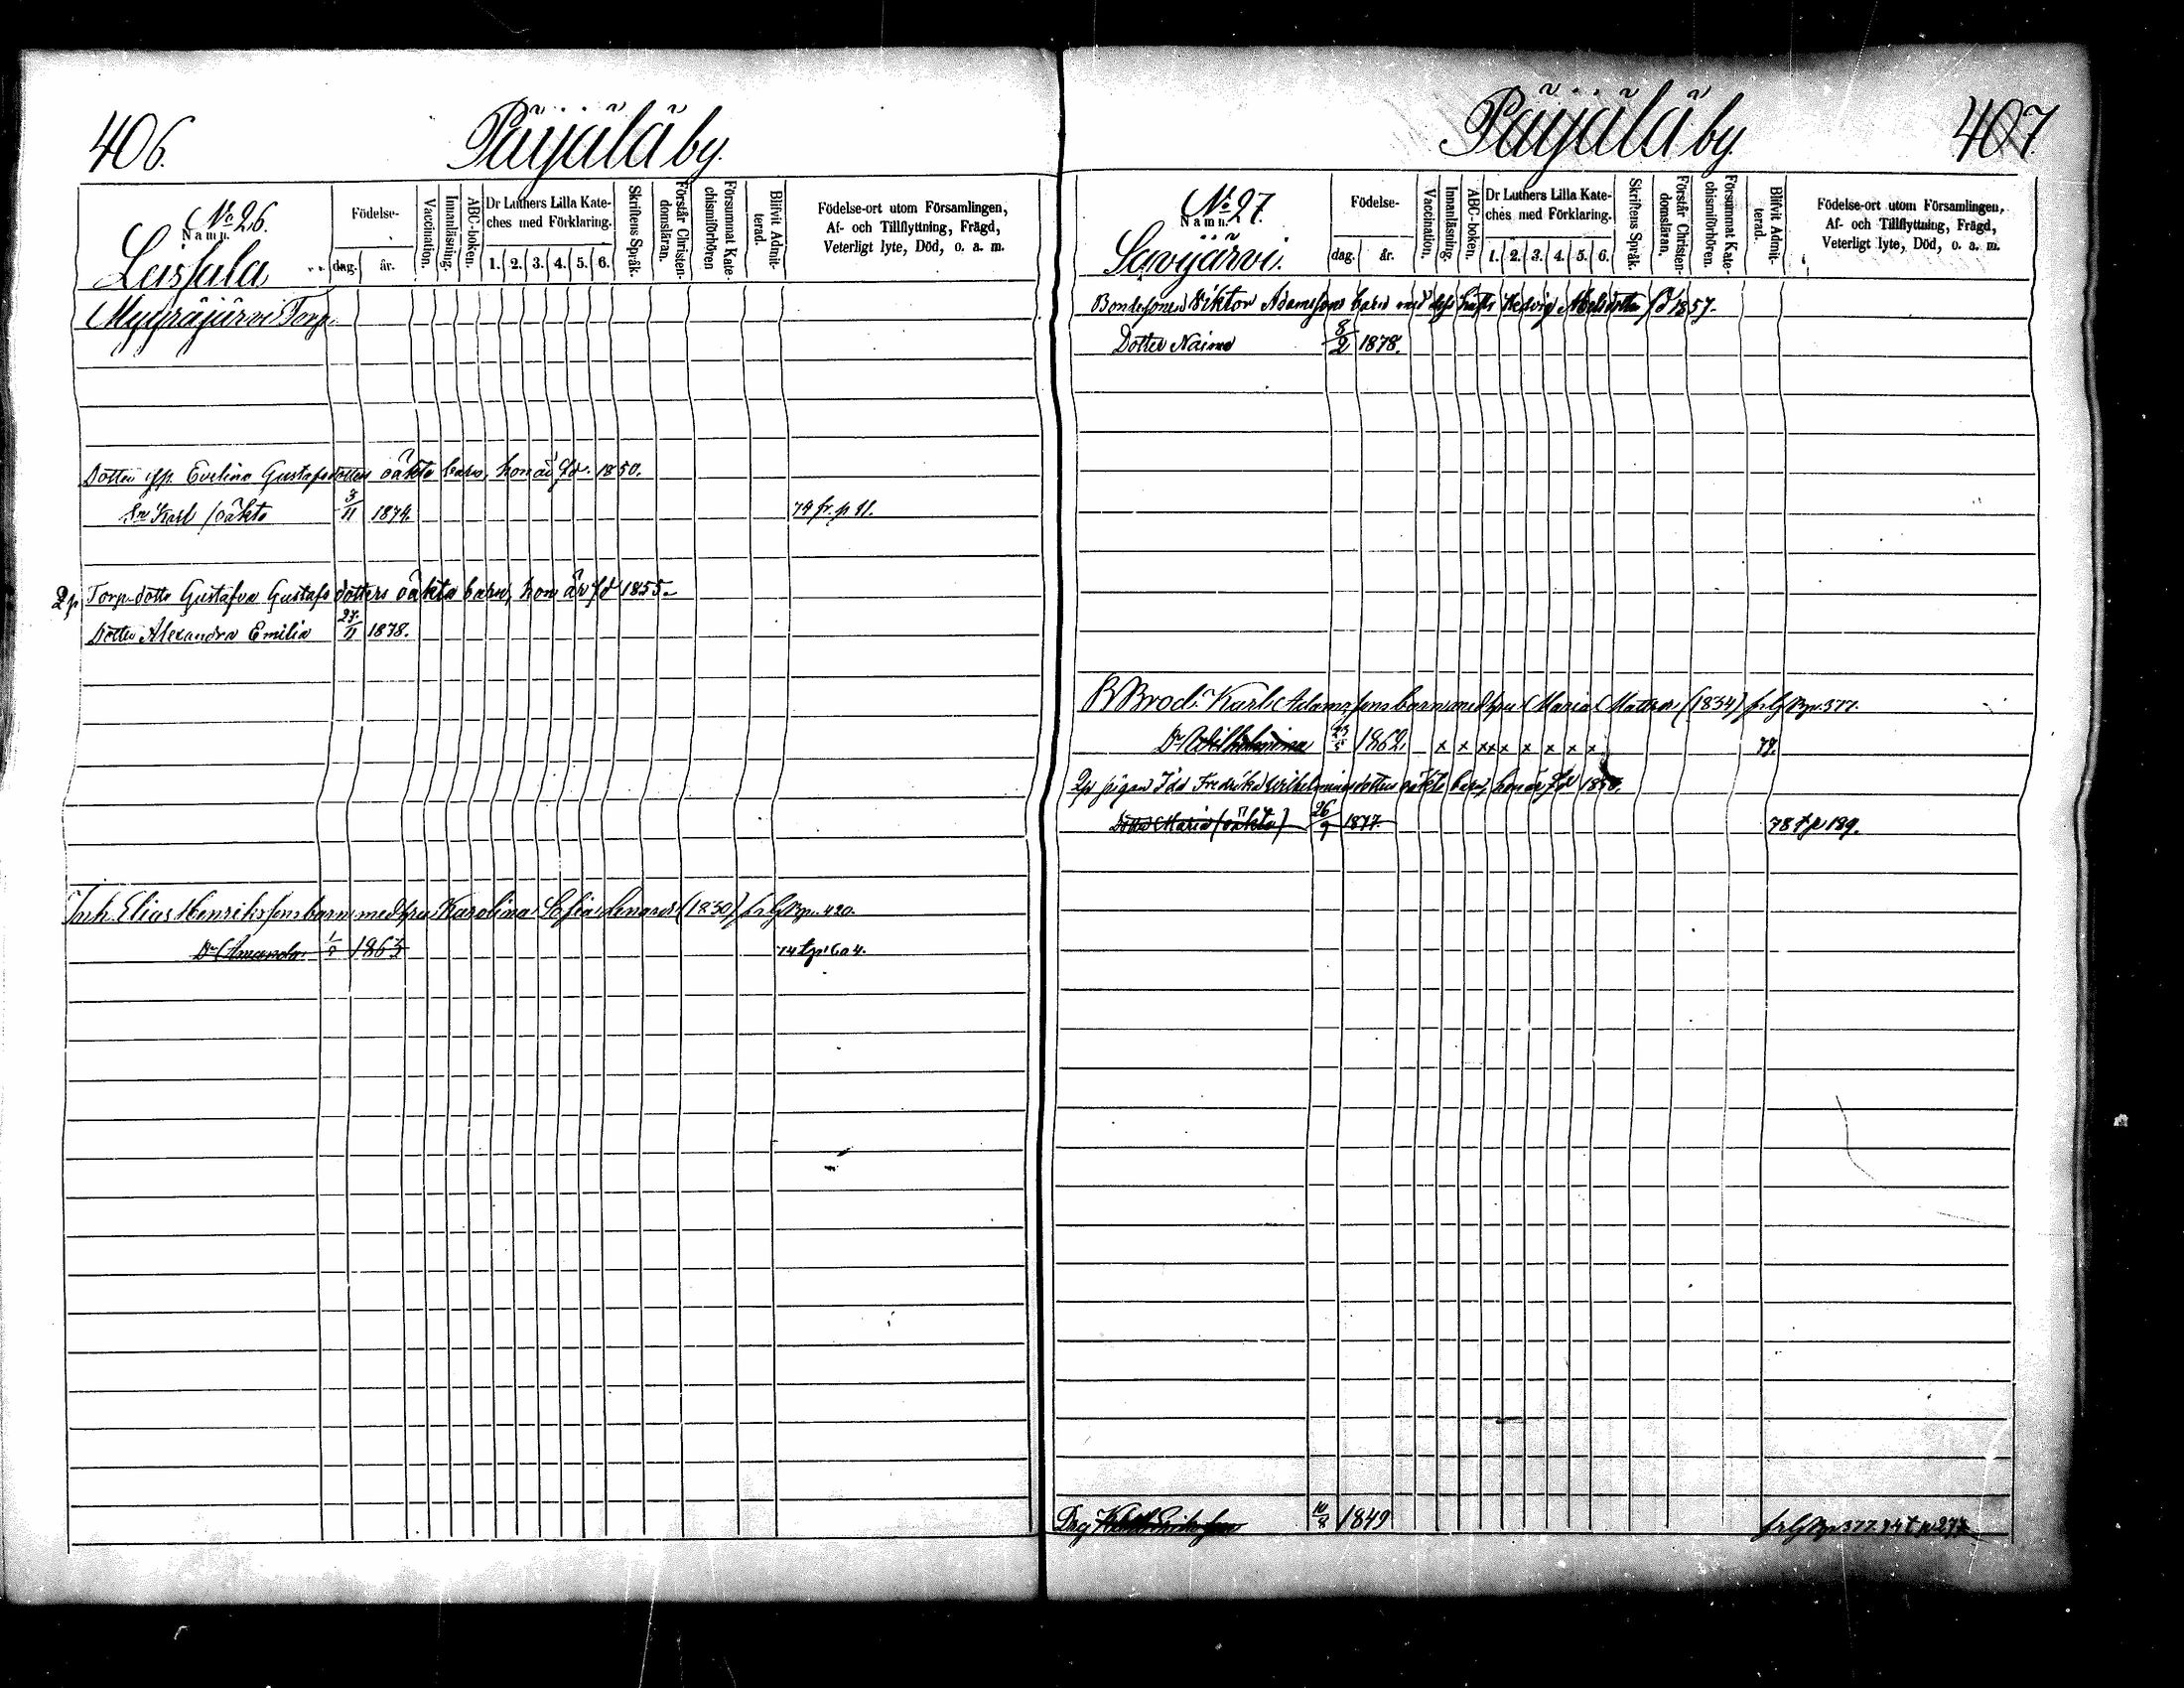 406.
Päijälä by.
No 26.
Namn.
Leissula
Födelse-
dag. år.
Vaccination.
Innanläsning.
ABC-boken.
Dr Luthers Lilla Kate-
ches med Förklaring.
1. 2. 3. 4. 5. 6.
Skriftens Språk.
Förstår Christen-
domsläran.
Försummat Kate-
chismiförhören
Blifvit Admit-
terad.
Födelse-ort utom Församlingen,
Af- och Tillflyttning, Frägd,
Veterligt lyte, Död, o. a. m.
Myyräjärvi Torp.
Dottern Evelina Gustafsdotters oäkta barn, hon är fd. 1850.
Sn Karl /oäkta 3/11 1874. 74 fr. p 11.
Torp. dottr Gustafva Gustafsdotters oäkta barn, hon är fd 1855.
Dotter Alexandra Emilia 27/11 1878.
Inh. Elias Henrikssons barn med hu Karolina Sofia (1830) fr. 420.
Dr Amanda 1863 74 t p 604.
Päijälä by.
407.
No 27.
Namn.
Savijärvi.
Födelse-
dag. år.
Vaccination.
Innanläsning.
ABC-boken.
Dr Luthers Lilla Kate-
ches med Förklaring.
1. 2. 3. 4. 5. 6.
Skriftens Språk.
Förstår Christen-
domsläran.
Försummat Kate-
chismiförhören.
Blifvit Admit-
terad.
Födelse-ort utom Församlingen,
Af- och Tillflyttning, Frägd,
Veterligt lyte, Död, o. a. m.
Bondesonen Viktor Adamssons barn med dess hustr Hedvig fd 1857.
Dotter Naima 8/2 1878.
B Brod. Karl Adamssons barn med hu Maria Mattsdr (1834) 377.
Dr Wilhelmina 1862 x x xx x x x x x
pigan Ida Fredrika Wilhelminasdotters oäkta barn, hon är fd
Dotter Maria (oäkta) 26/9 1877. 78 t p 189.
Drg 10/8 1849 377. 74 t p